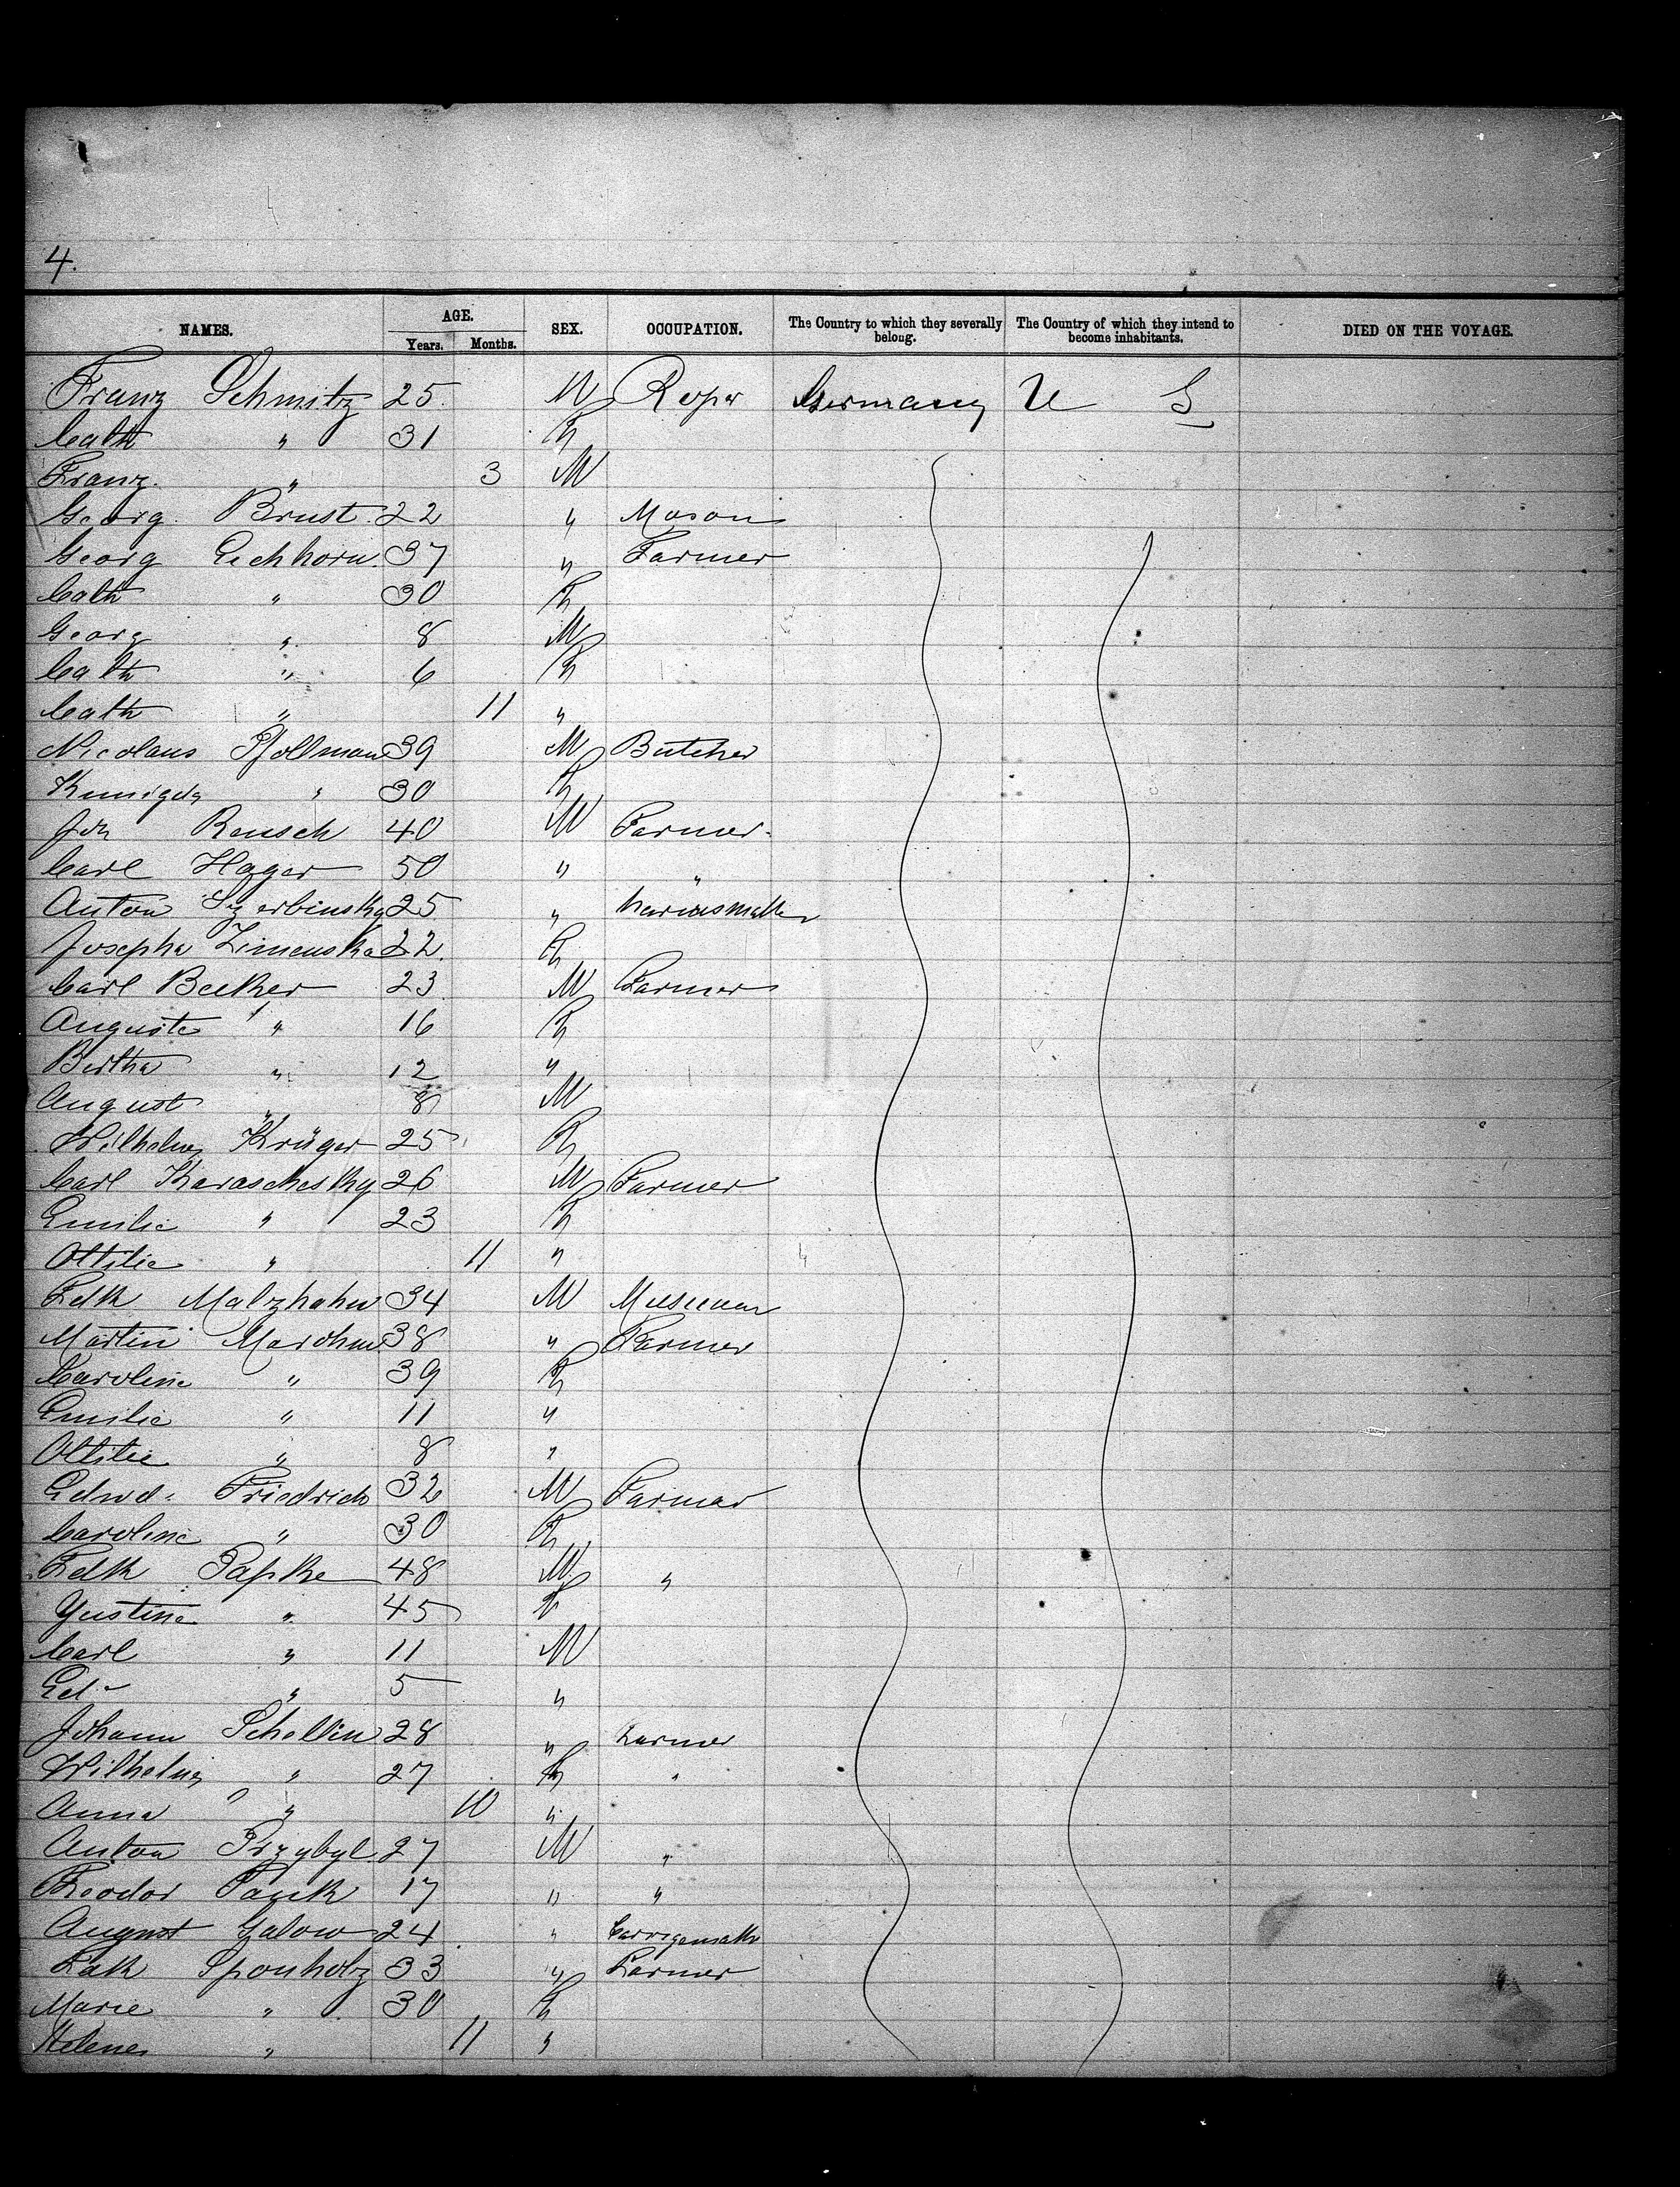 4.
NAMES. AGE. SEX. OCCUPATION. The Country to which they severally belong. The Country of which they intend to become inhabitants. DIED ON THE VOYAGE.
Years. Months.
Franz Schmitz 25 M Roper Germany U S
Cath " 31 F
Franz " 3 M
Georg Brust 22 " Mason
Georg Eichhorn 37 " Farmer
Cath " 30 F
Georg " 8 M
Cath " 6 F
Cath " 11 "
Nicolaus 39 M Butcher
" 30 F
Joh Reusch 40 M Farmer
Carl Hager 50 " "
Anton Szerbinsky 25 "
Josepha Zimenska 22 F
Carl Becker 23 M Farmer
Auguste " 16 F
Bertha " 12 "
August " 8 M
Wilhelm Krüger 25 F
Carl Karaschesky 26 M Farmer
Emilie " 23 F
Ottilie " 11 "
Fdk Malzhahn 34 M
Martin Marohn 38 " Farmer
Caroline " 39 F
Emilie " 11 "
Ottilie " 8 "
Edwd. Friedrich 32 M Farmer
Caroline " 30 F
Fdk Papke 48 M "
Justine " 45 F
Carl " 11 M
Ed " 5 "
Johann Schellin 28 " Farmer
Wilhelm " 27 F "
Anna " 10 "
Anton Przybyl 27 M "
Teodor 17 " "
August Galow 24 "
Fdk Sponholz 33 " Farmer
Marie " 30 F
Helene " 11 "